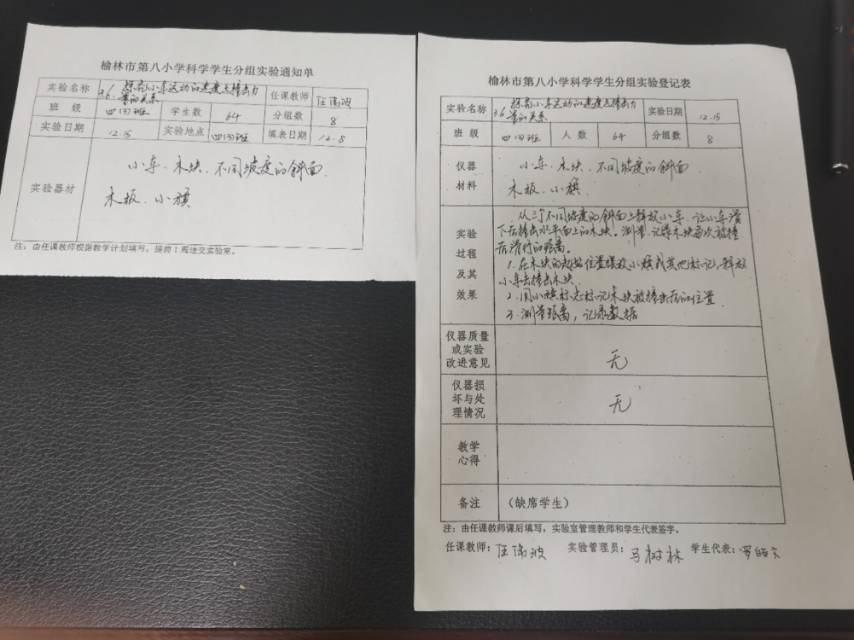 榆林市第八小学科学学生分组实验通知单
实验名称 3.6 探究小车运动的速度与撞击力 任课教师
量的关系
班 级 四(四)班 学生数 64 分组数 8
实验日期 12.15 实验地点 四(四)班 填表日期 12.8
实验器材
小车、木块、不同坡度的斜面
木板、小旗
注:由任课教师根据教学计划填写,提前1周送交实验室。
榆林市第八小学科学学生分组实验登记表
实验名称 3.6 探究小车运动的速度与撞击力 实验日期 12.15
量的关系
班 级 四(四)班 人 数 64 分组数 8
仪器
材料
小车、木块、不同坡度的斜面
木板、小旗
实验
过程
及其
效果
从三个不同坡度的斜面上释放小车,让小车滑
下后撞击水平面上的木块。测量、记录木块每次被撞
后滑行的距离。
1.在木块的起始位置摆放小旗或其他标记,释放
小车去撞击木块
2.用小旗标志标记木块被撞击后的位置
3.测量距离,记录数据
仪器质量
或实验
改进意见
无
仪器损
坏与处
理情况
无
教学
心得
备注 (缺席学生)
注:由任课教师课后填写,实验室管理教师和学生代表签字。
任课教师: 实验管理员:马树林 学生代表: